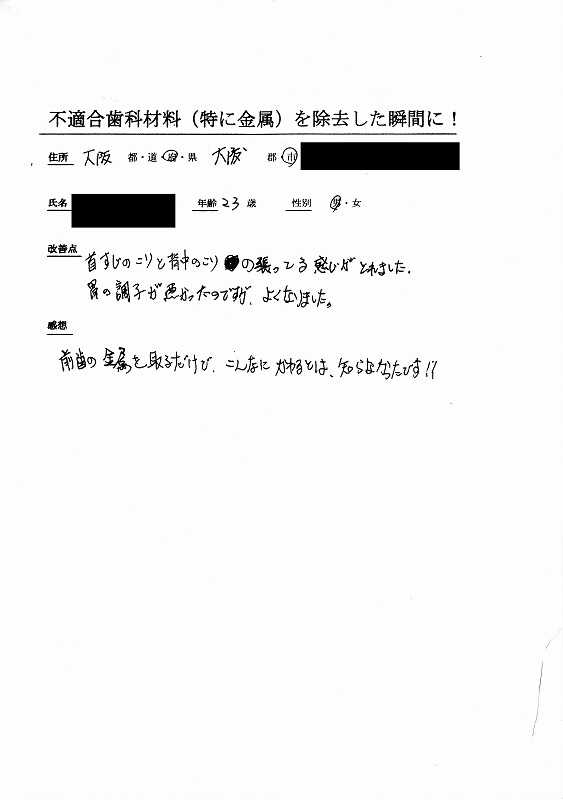 不適合歯科材料（特に金属）を除去した瞬間に！
住所 大阪 都・道・府・県 大阪 郡・市
氏名 年齢 23 歳 性別 男・女
改善点
首すじのこりと背中のこりの張ってる感じがとれました。
胃の調子が悪かったのですが、よくなりました。
感想
前歯の金属を取るだけで、こんなにかわるとは、知らなかったです!!